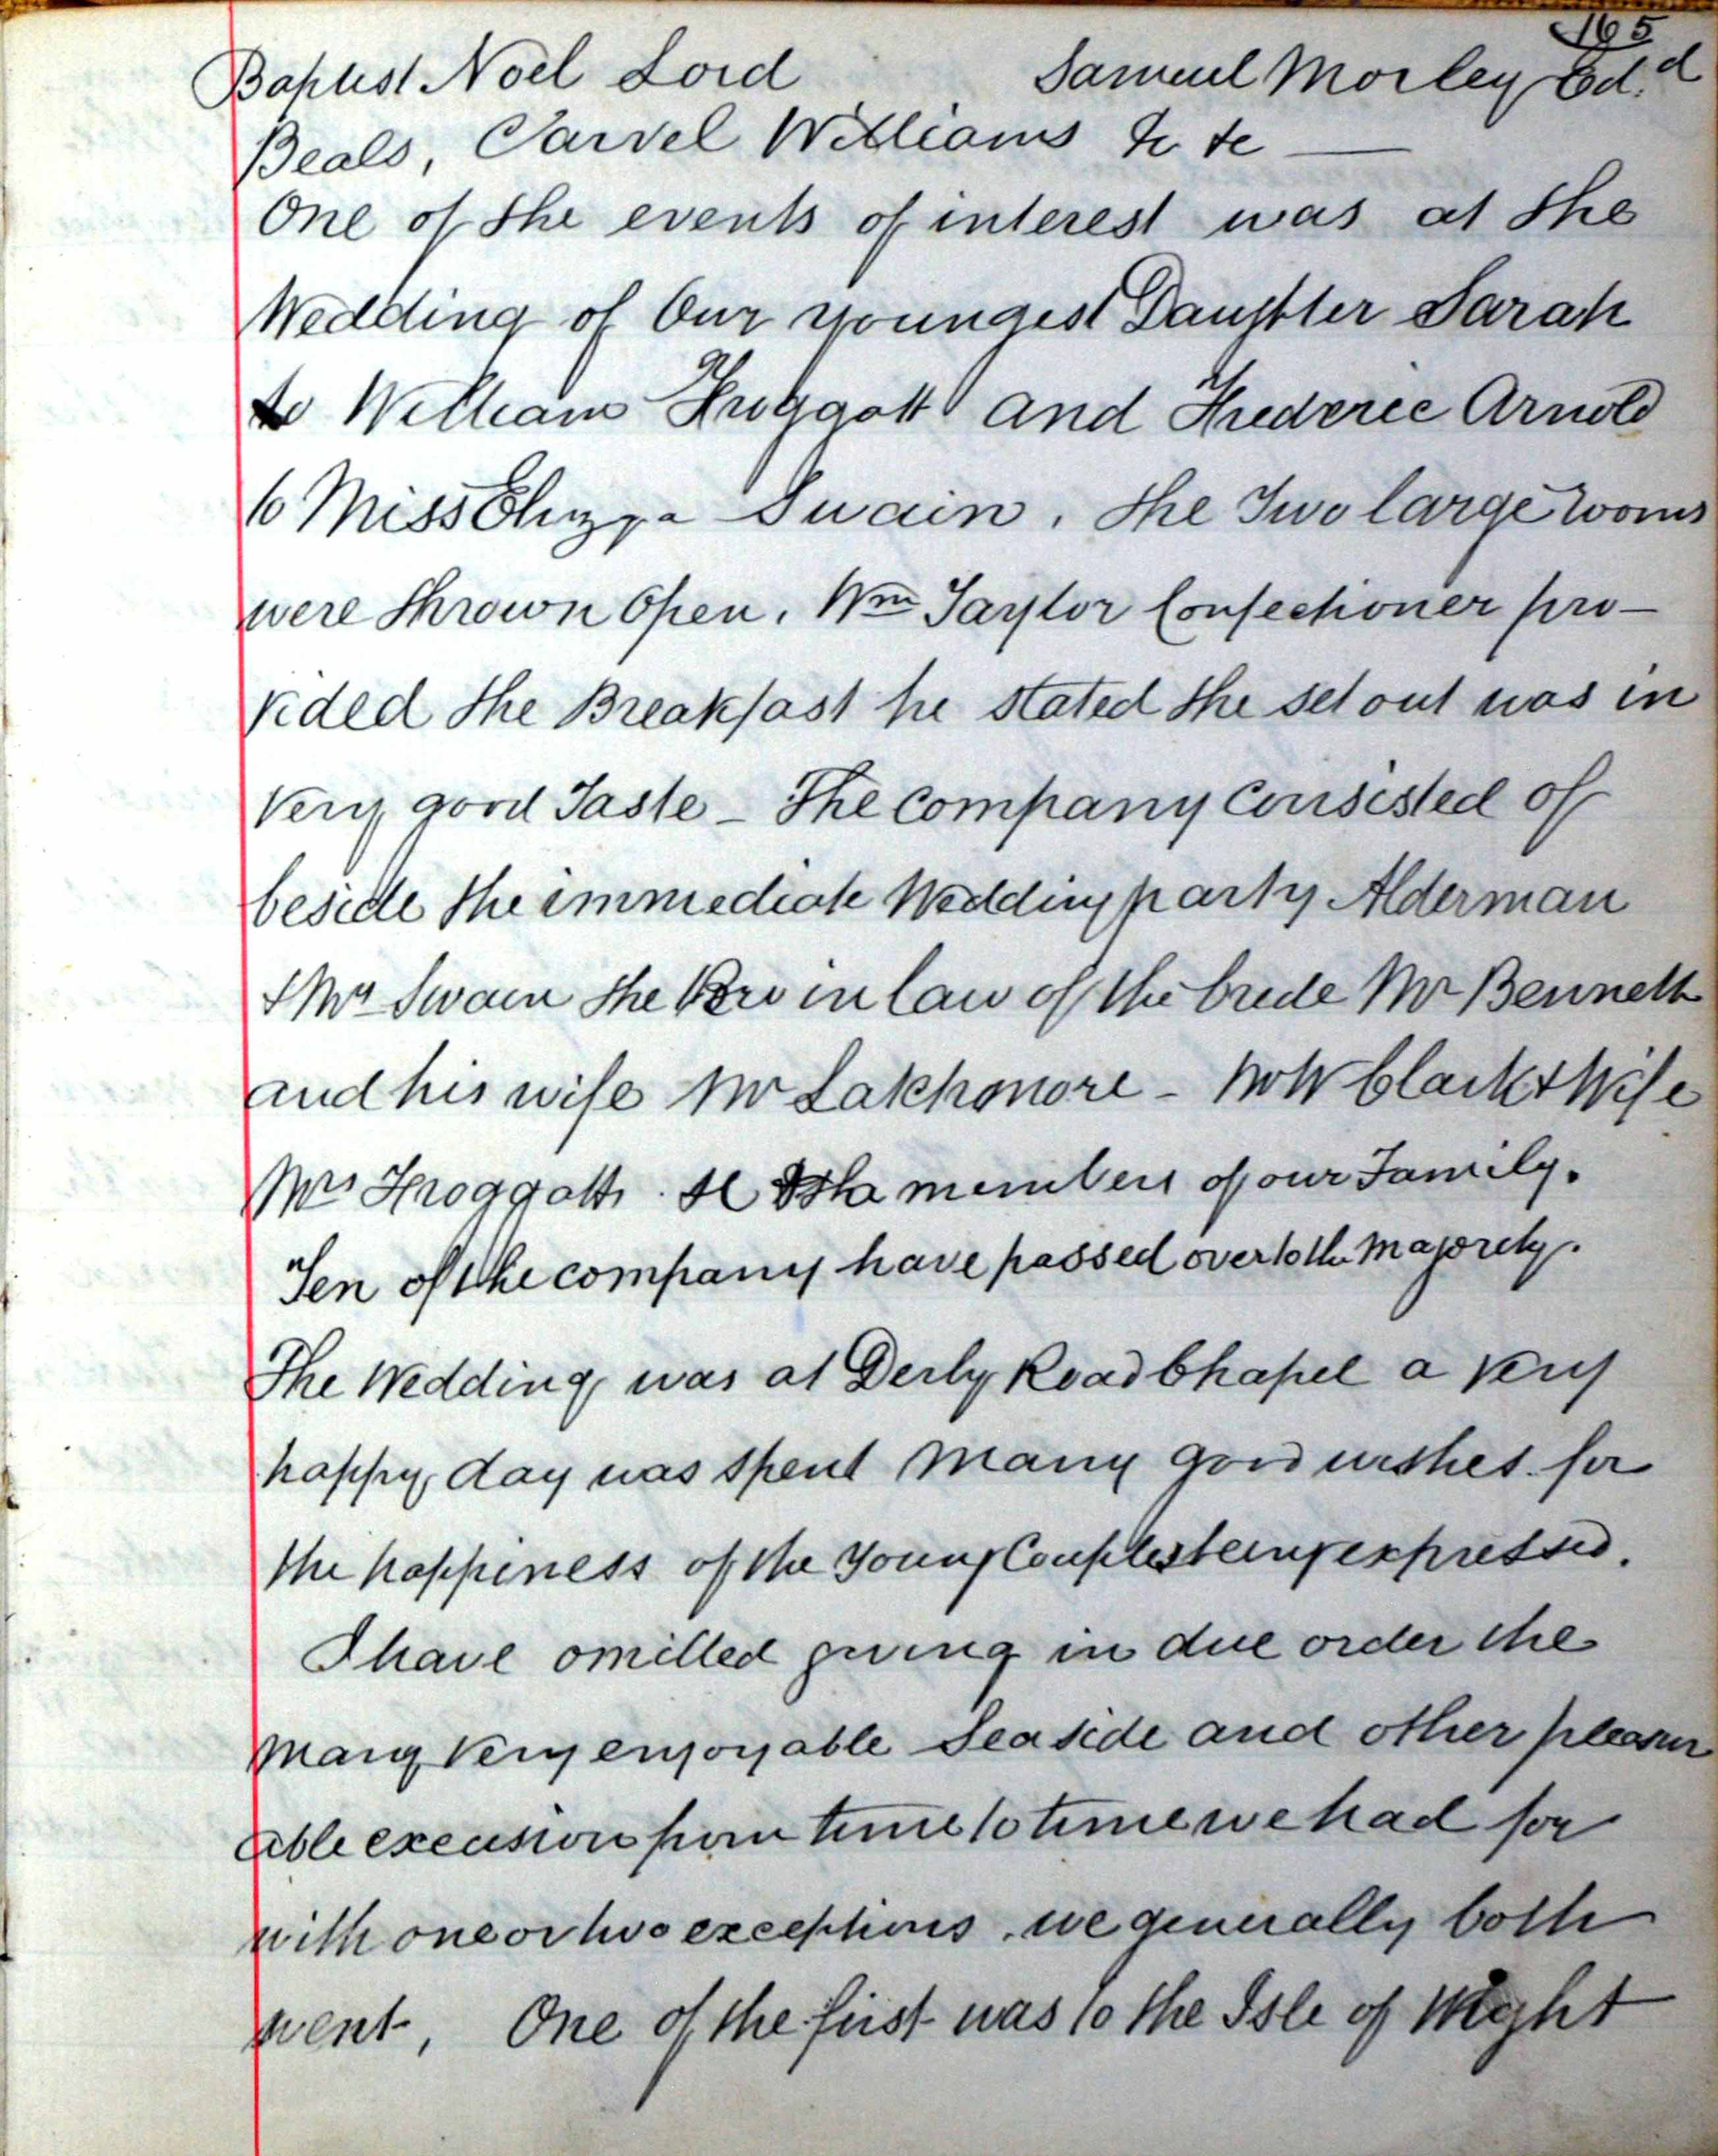 165
Baptist Noel Lord Samuel Morley Ed.d
Beals, Carvel Williams &c &c —
One of the events of interest was at the
Wedding of Our youngest Daughter Sarah
to William Froggatt and Frederic Arnold
to Miss Swain. The Two large rooms
were thrown Open. Wm Taylor Confectioner pro-
vided the Breakfast he stated the set out was in
Very good Taste - The Company Consisted of
beside the immediate Wedding party Alderman
& Mrs Swain the Bro in law of the bride Mr Bennett
and his wife Mr - Mr W Clark & Wife
Mrs Froggatt. members of our Family.
Ten of the company have passed over to the Majority.
The Wedding was at Derby Road Chapel a Very
happy day was spent Many good wishes for
the happiness of the Young Couples being expressed.
I have omitted giving in due order the
Many Very enjoyable Seaside and other pleasur
able excusion from time to time we had for
with one or two exceptions. we generally both
went, One of the first was to the Isle of Wight